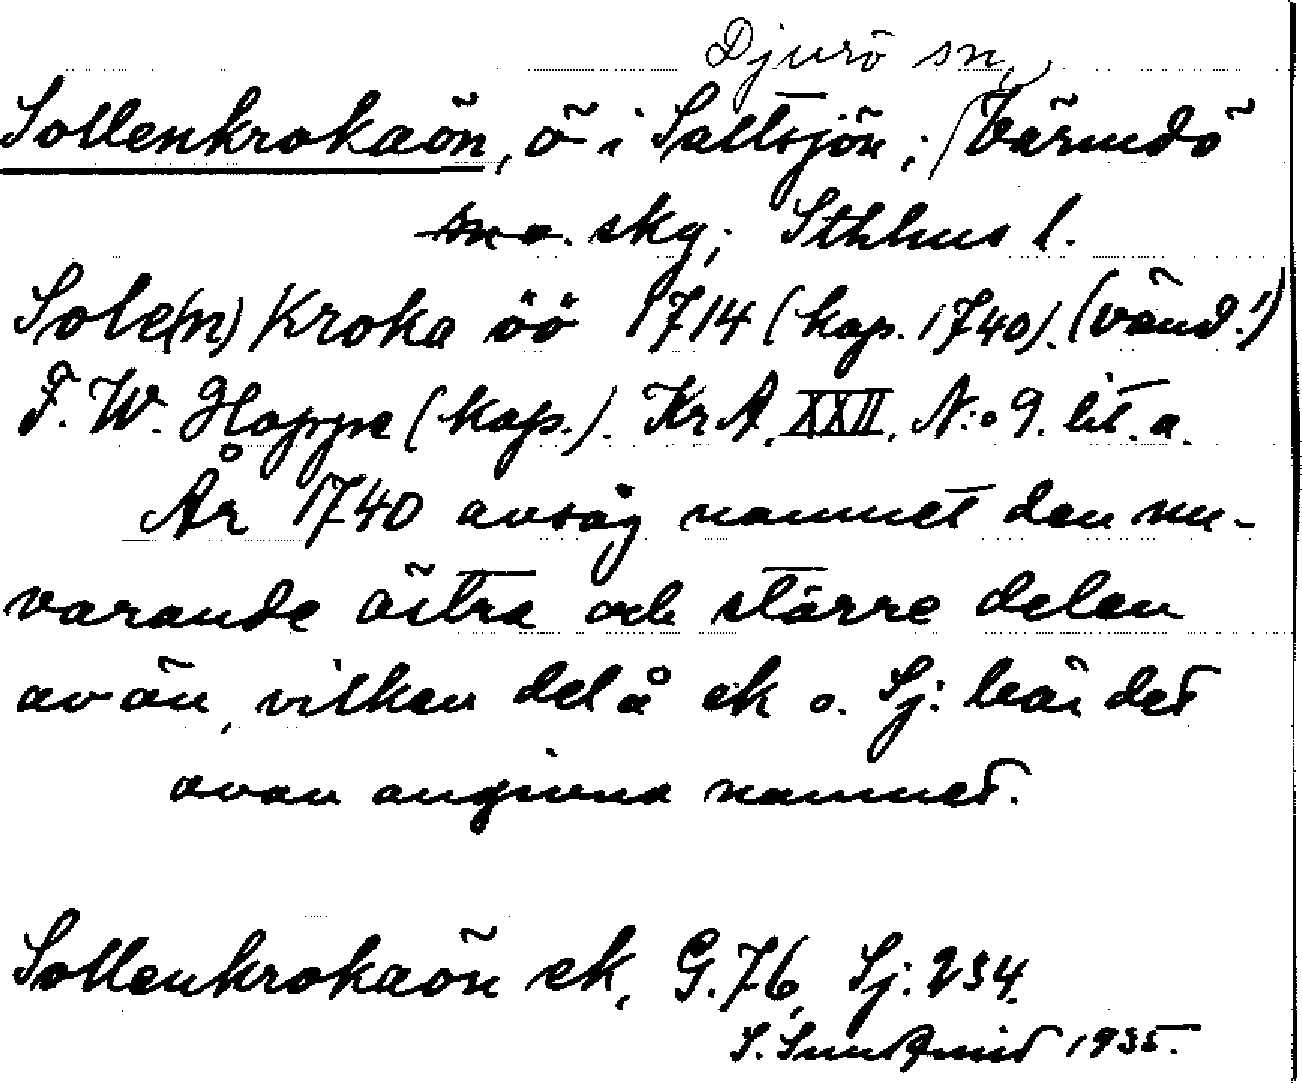 Djurö sn,
Sollenkrokaön, ö i Saltsjön; Värmdö
sn o. skg; Sthlms l.
Sole(n) Kroka öö 1714 (kop. 1740). (vänd!)
F. W. Hoppe (kop.). Kr A. XXII. N:o 9. lit. a.
År 1740 avsåg namnet den nu-
varande östra och större delen
av ön, vilken del å ek o. Sj: bär det
ovan angivna namnet.
Sollenkrokaön ek, G. 76, Sj: 234.
S. Sundqvist 1935.